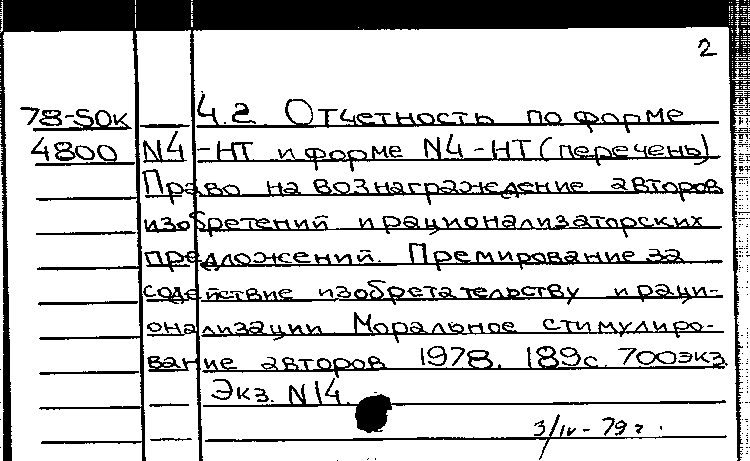 2
78-50к 4.2. Отчетность по форме
4800 N4-НТ и форме N4-НТ (перечень)
Право на вознаграждение авторов
изобретений и рационализаторских
предложений. Премирование за
содействие изобретательству и раци-
онализации Моральное стимулиро-
вание авторов 1978. 189с. 700экз
Экз. N14.
3/IV-79г.